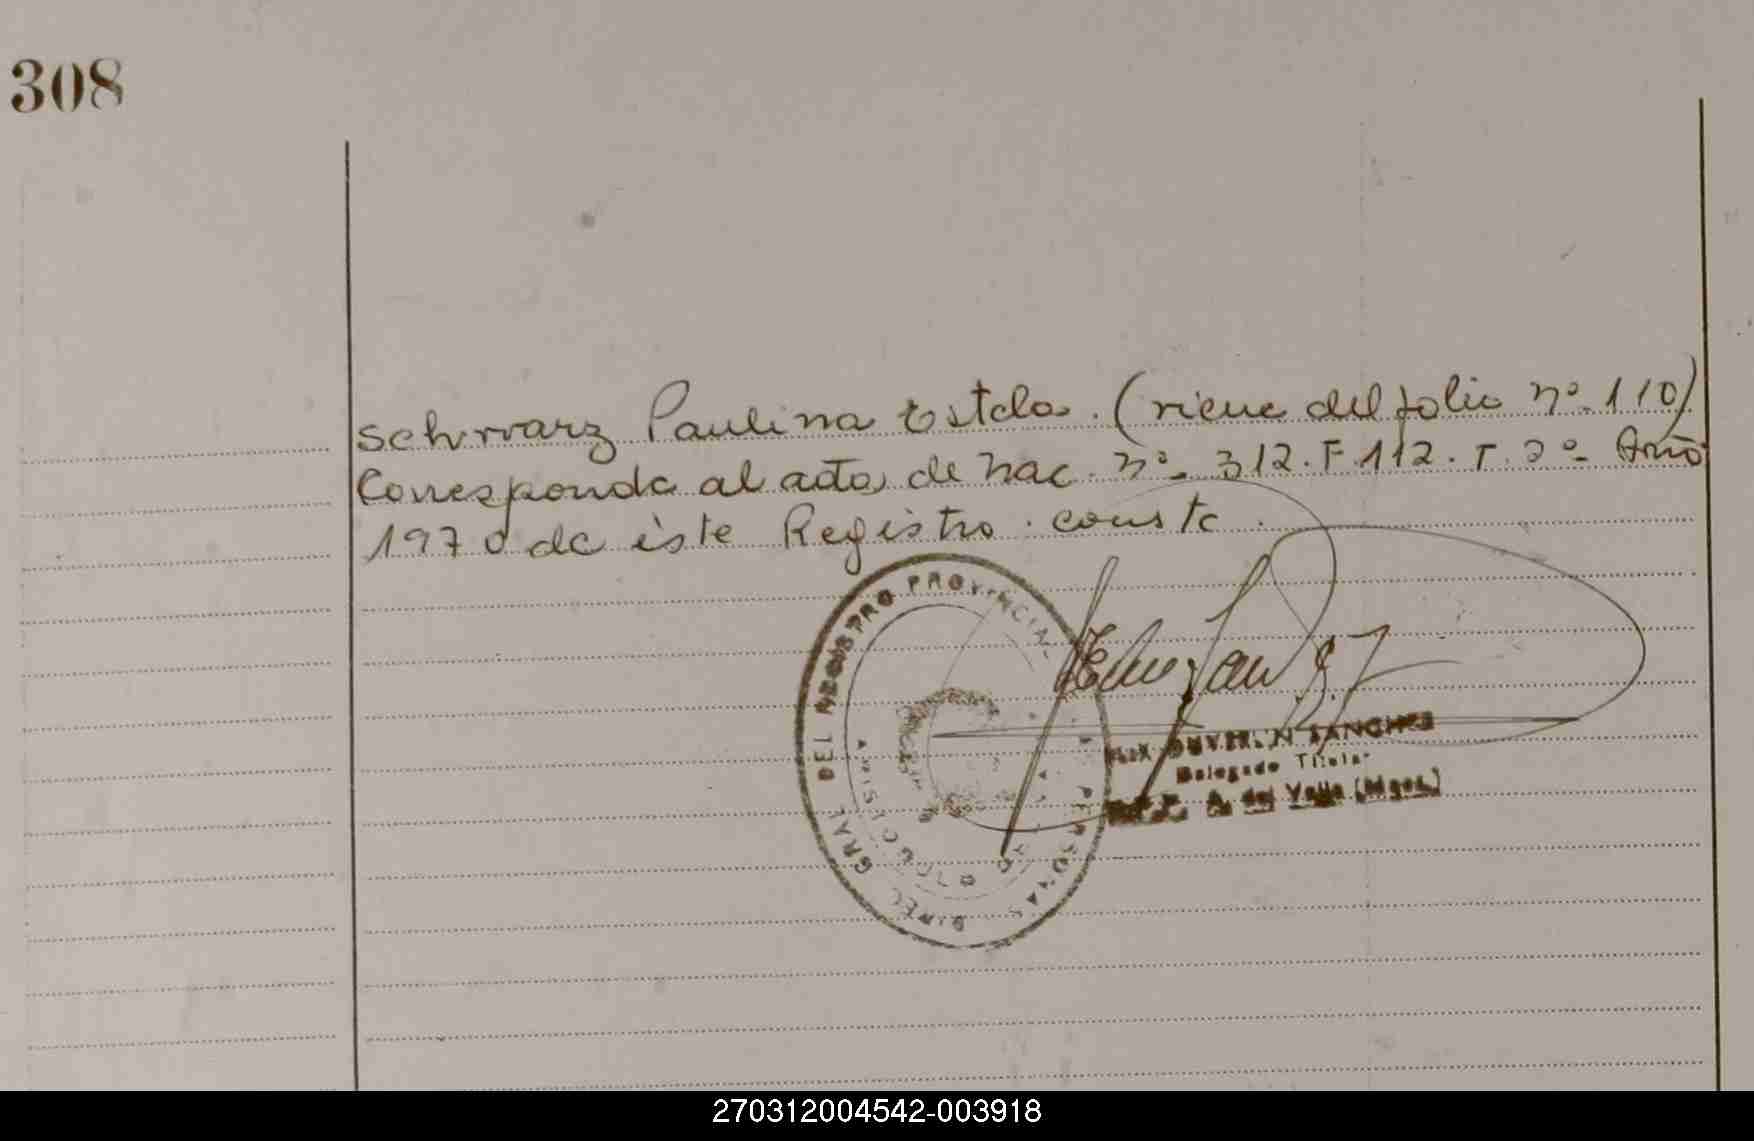 308
Schvvarz Paulina Estela. (viene del folio nº 110)
Corresponde al acta de nac. nº 312. F 112. T. 2º Año
1970 de éste Registro. conste.
DIREC GRAL DEL REGISTRO PROVINCIAL PERSONAS
SANCHEZ
Delegado Titular
A. del Valle (Mnes.)
270312004542-003918